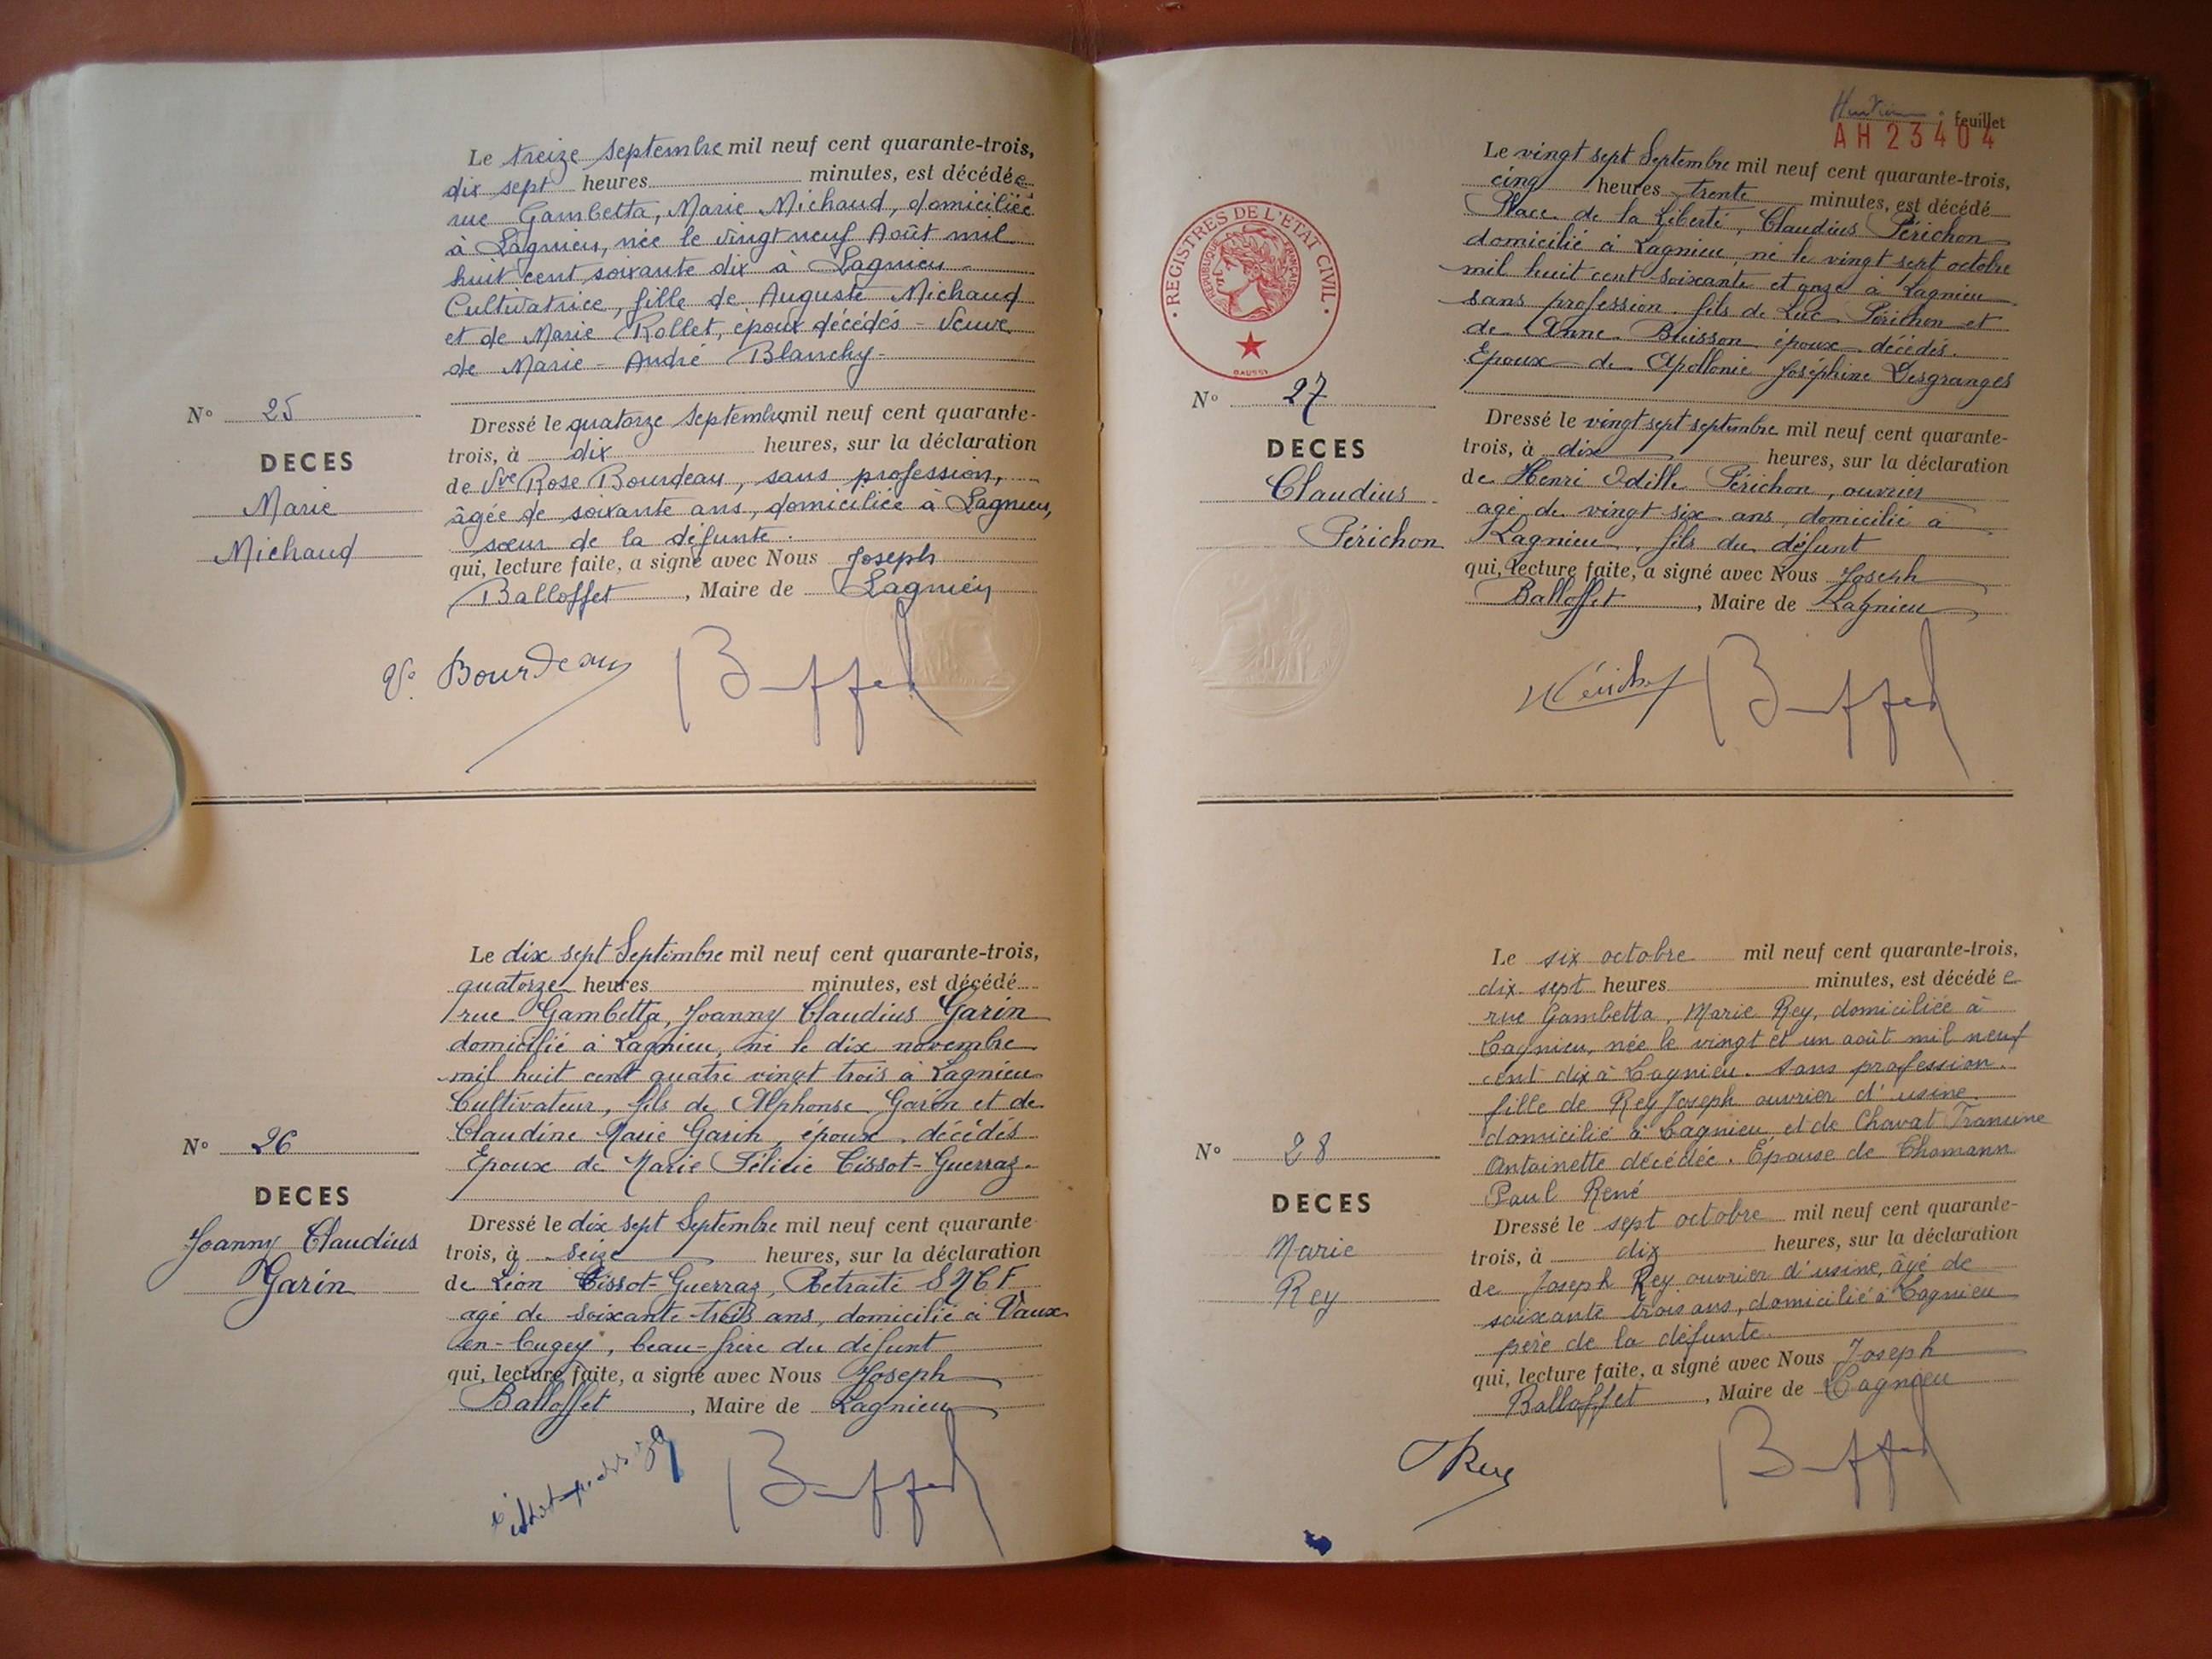 Le treize Septembre mil neuf cent quarante-trois,
dix sept heures minutes, est décédée
rue Gambetta, Marie Michaud, domiciliée
à Lagnieu, née le vingt neuf Août mil
huit cent soixante dix à Lagnieu -
Cultivatrice, fille de Auguste Michaud
et de Marie Rollet, époux décédés - Veuve
de Marie - André Blanchy -
N° 25
DECES
Marie
Michaud
Dressé le quatorze Septembre mil neuf cent quarante-
trois, à dix heures, sur la déclaration
de Vve Rose Bourdeau, sans profession,
âgée de soixante ans, domiciliée à Lagnieu,
sœur de la défunte.
qui, lecture faite, a signé avec Nous Joseph
Balloffet, Maire de Lagnieu
Ve Bourdeau
Le dix sept Septembre mil neuf cent quarante-trois,
quatorze heures minutes, est décédé
rue Gambetta, Joanny Claudius Garin
domicilié à Lagnieu, né le dix novembre
mil huit cent quatre vingt trois à Lagnieu
Cultivateur, fils de Alphonse Garin et de
Claudine Marie Garin, époux décédés
Epoux de Marie Félicie Cissot-Guerraz.
N° 26
DECES
Joanny Claudius
Garin
Dressé le dix sept Septembre mil neuf cent quarante
trois, à seize heures, sur la déclaration
de Léon Cissot-Guerraz, Retraité SNCF
agé de soixante-trois ans, domicilié à Vaux
en-bugey, beau-frère du défunt
qui, lecture faite, a signé avec Nous Joseph
Balloffet, Maire de Lagnieu
feuillet
AH23404
REGISTRES DE L'ETAT CIVIL
REPUBLIQUE FRANÇAISE
Le vingt sept Septembre mil neuf cent quarante-trois,
cinq heures trente minutes, est décédé
Place de la Liberté, Claudius Périchon
domicilié à Lagnieu, né le vingt sept octobre
mil huit cent soixante et onze à Lagnieu
sans profession. fils de Luc Périchon et
de Anne Buisson époux décédés.
Epoux de Apollonie Joséphine Desgranges
N° 27
DECES
Claudius
Périchon
Dressé le vingt sept septembre mil neuf cent quarante-
trois, à dix heures, sur la déclaration
de Henri Odille Périchon, ouvrier
agé de vingt six ans, domicilié à
Lagnieu, fils du défunt
qui, lecture faite, a signé avec Nous Joseph
Balloffet, Maire de Lagnieu
Le six octobre mil neuf cent quarante-trois,
dix sept heures minutes, est décédée
rue Gambetta, Marie Rey, domiciliée à
Lagnieu, née le vingt et un août mil neuf
cent dix à Lagnieu. sans profession.
fille de Rey Joseph ouvrier d'usine
domicilié à Lagnieu, et de Chavat
Antoinette décédée. Epouse de Thomann
Paul René
N° 28
DECES
Marie
Rey
Dressé le sept octobre mil neuf cent quarante-
trois, à dix heures, sur la déclaration
de Joseph Rey ouvrier d'usine, âgé de
soixante trois ans, domicilié à Lagnieu
père de la défunte.
qui, lecture faite, a signé avec Nous Joseph
Balloffet, Maire de Lagnieu